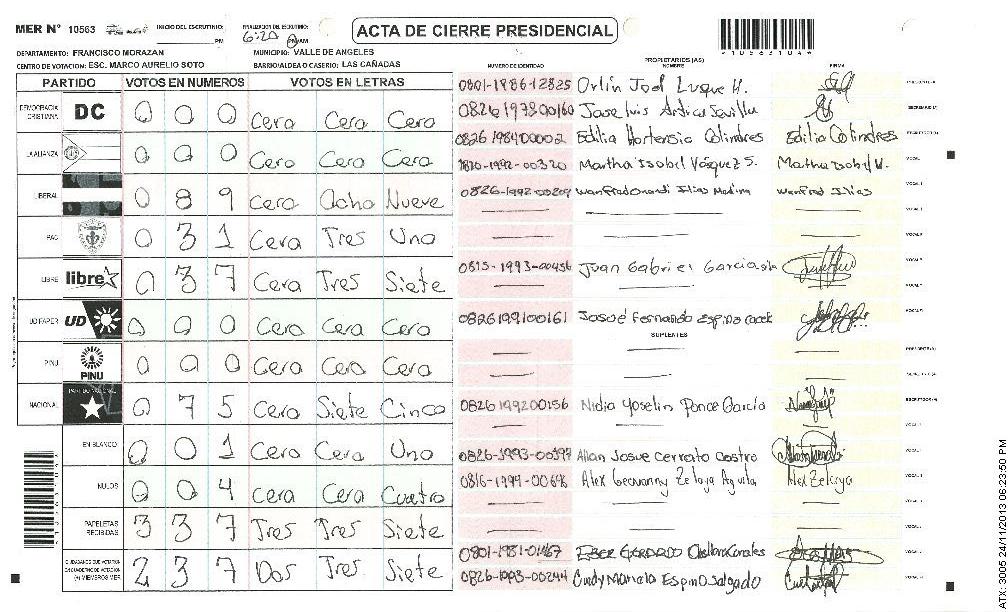 MER N° 10563 INICIO DEL ESCRUTINIO: PM FINALIZACION DEL ESCRUTINIO: 6:20 AM
ACTA DE CIERRE PRESIDENCIAL
DEPARTAMENTO: FRANCISCO MORAZAN MUNICIPIO: VALLE DE ANGELES
CENTRO DE VOTACION: ESC. MARCO AURELIO SOTO BARRIO/ALDEA O CASERIO: LAS CAÑADAS
PARTIDO VOTOS EN NUMEROS VOTOS EN LETRAS
DEMOCRACIA CRISTIANA DC 0 0 0 Cero Cero Cero
LA ALIANZA 0 0 0 Cero Cero Cero
LIBERAL 0 8 9 Cero Ocho Nueve
PAC 0 3 1 Cero Tres Uno
LIBRE libre 0 3 7 Cero Tres Siete
UD FAPER UD 0 0 0 Cero Cero Cero
PINU PINU 0 0 0 Cero Cero Cero
NACIONAL 0 7 5 Cero Siete Cinco
EN BLANCO 0 0 1 Cero Cero Uno
NULOS 0 0 4 Cero Cero Cuatro
PAPELETAS RECIBIDAS 3 3 7 Tres Tres Siete
CIUDADANOS QUE VOTARON (+) MIEMBROS MER 2 3 7 Dos Tres Siete
PROPIETARIOS (AS)
NUMERO DE IDENTIDAD NOMBRE FIRMA
0801-1986-12825 Orlin Joel Luque H.
0826197800160 Jose Luis
0826198400002 Edilia Hortensia Colindres Edilia Colindres
1992-00320 Martha Isabel Vásquez S. Martha Isabel V.
0826-1992-00209
0815-1993-00456 Juan Gabriel Garcia
0826199100161 Josué Fernando Espino
SUPLENTES
0826199200156 Nidia Yoselin Ponce García
0826-1993- Allan Josue Cerrato Castro
0816-1999-00698 Alex Geovanny Zelaya Aguila Alex Zelaya
0801-1981-
0826-1993-00244 Cindy Mariela Espino Salgado
ATX: 3005 24/11/2013 06:23:50 PM